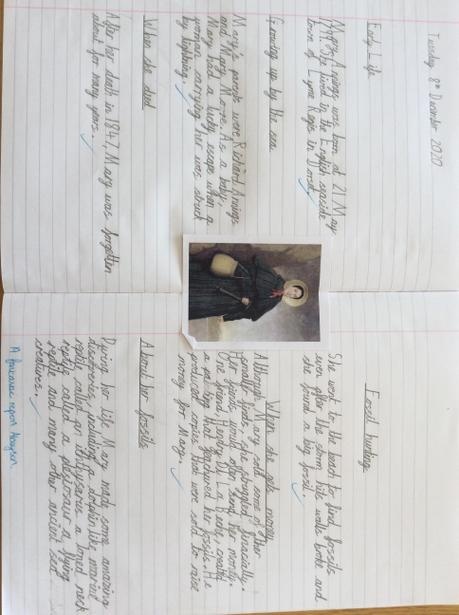 Tuesday 8th December 2020
Early Life
Mary Anings was born at 21 May
1799. She lived in the English seaside
town of Lyme Regis in Dorset
Growing up by the sea
Mary's parents were Richard Anings
and Mary Moore. As a baby,
Mary had a lucky escape when a
woman carrying her was struck
by lightning.
When she died
After her death in 1847, Mary was forgotten
about for many years.
Fossil hunting
She went to the beach to find fossils
even after the storm hits walls broke and
she found a big fossil
When she gets money
Although Mary sold some of other
smaller finds, she struggled finacially.
Her friends would often send her money.
One friend, Henry De La Beche, created
a painting that featured her fossils. He
produced copies that were sold to raise
money for Mary.
About her fossils
During her life Mary made some amazing
discoveries, including a dolphin like marine
reptile called an ichthysaurus a longed neck
reptile called a plesiosaur a flying
reptile and many other ancient sea
creatures.
A fantastic report